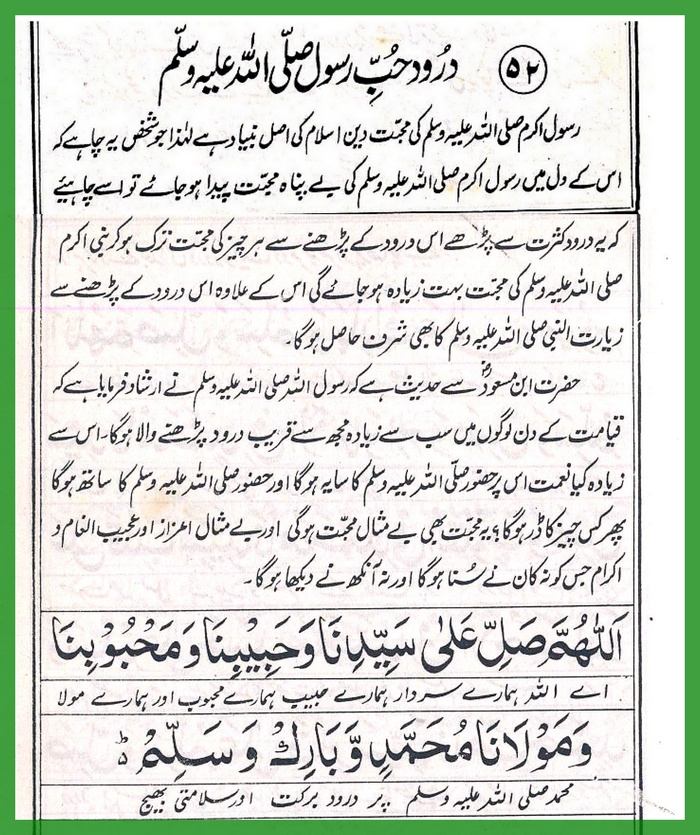 ۵۲ درُود حُبِّ رسول صلّی اللہ علیہ وسلّم
رسول اکرم صلی اللہ علیہ وسلم کی محبّت دین اسلام کی اصل بنیاد ہے لہٰذا جو شخص یہ چاہے کہ
اس کے دل میں رسول اکرم صلی اللہ علیہ وسلم کی بے پناہ محبّت پیدا ہو جائے تو اسے چاہیئے
کہ یہ درود کثرت سے پڑھے اس درود کے پڑھنے سے ہر چیز کی محبّت ترک ہو کر نبی اکرم
صلی اللہ علیہ وسلم کی محبّت بہت زیادہ ہو جائے گی اس کے علاوہ اس درود کے پڑھنے سے
زیارت النبی صلی اللہ علیہ وسلم کا بھی شرف حاصل ہو گا۔
حضرت ابن مسعودؓ سے حدیث ہے کہ رسول اللہ صلی اللہ علیہ وسلم نے ارشاد فرمایا ہے کہ
قیامت کے دن لوگوں میں سب سے زیادہ مجھ سے قریب درود پڑھنے والا ہوگا۔ اس سے
زیادہ کیا نعمت اس پر حضور صلّی اللہ علیہ وسلم کا سایہ ہو گا اور حضور صلی اللہ علیہ وسلم کا ساتھ ہو گا
پھر کس چیز کا ڈر ہو گا؟ یہ محبّت بھی بے مثال محبّت ہو گی اور بے مثال اعزاز اور عجیب انعام و
اکرام جس کو نہ کان نے سُنا ہو گا اور نہ آنکھ نے دیکھا ہو گا۔
اَللّٰهُمَّ صَلِّ عَلٰى سَيِّدِنَا وَحَبِيْبِنَا وَمَحْبُوْبِنَا
اے اللہ ہمارے سردار ہمارے حبیب ہمارے محبوب اور ہمارے مولا
وَمَوْلَانَا مُحَمَّدٍ وَّبَارِكْ وَسَلِّمْ ؕ
محمد صلی اللہ علیہ وسلم پر درود برکت اور سلامتی بھیج